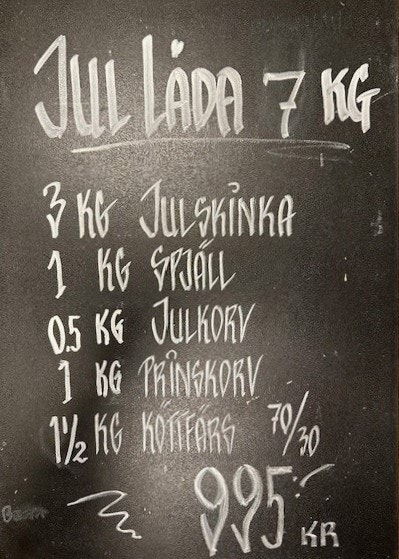 JUL LÅDA 7 KG
3 KG JULSKINKA
1 KG SPJÄLL
0.5 KG JULKORV
1 KG PRINSKORV
1 1/2 KG KÖTTFÄRS 70/30
995:- KR